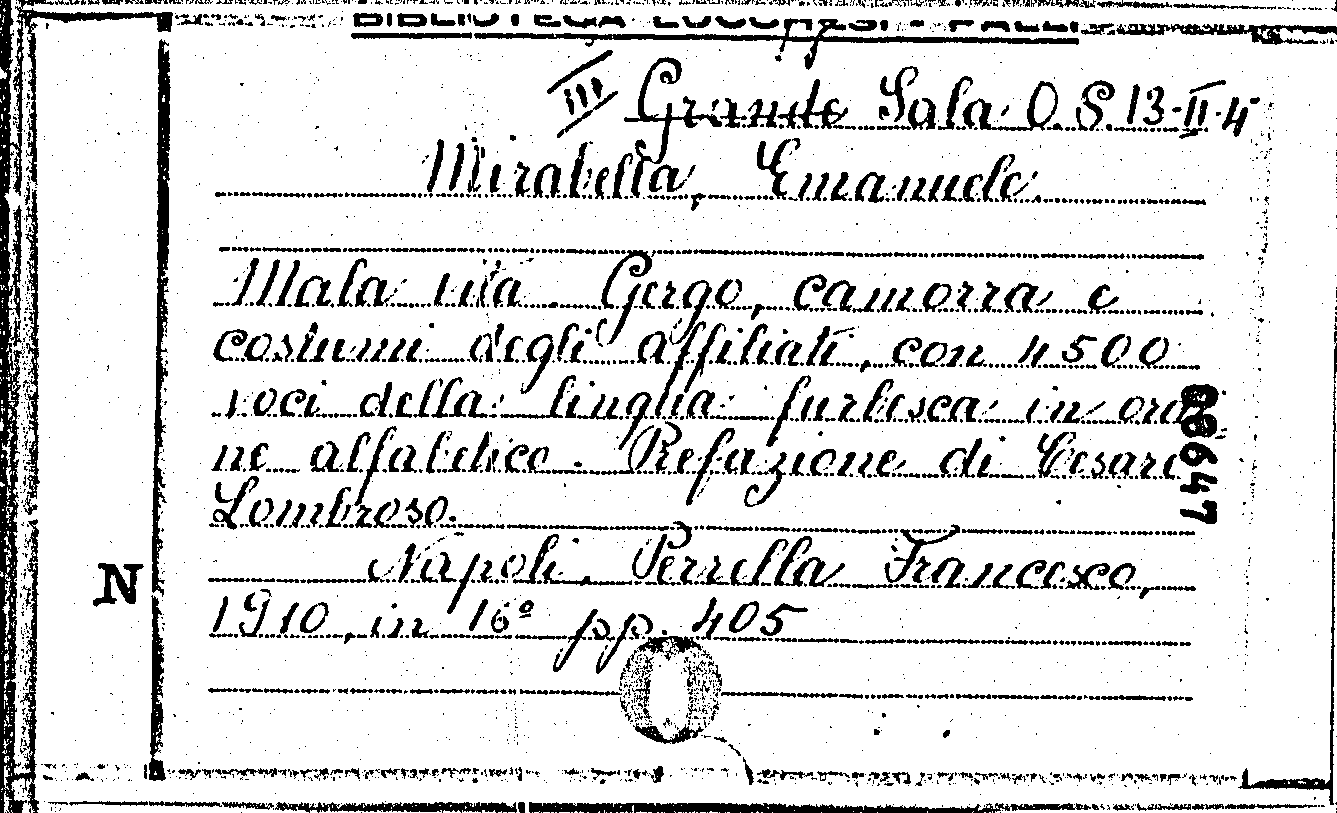 BIBLIOTECA LUCCHESI - PALLI
III Grande Sala O. S. 13-II-4
Mirabella, Emanuele.
Mala vita. Gergo, camorra e
costumi degli affiliati, con 4500
voci della lingua furbesca in ordi
ne alfabetico. Prefazione di Cesare
Lombroso.
Napoli, Perrella Francesco,
1910, in 16º pp. 405
N